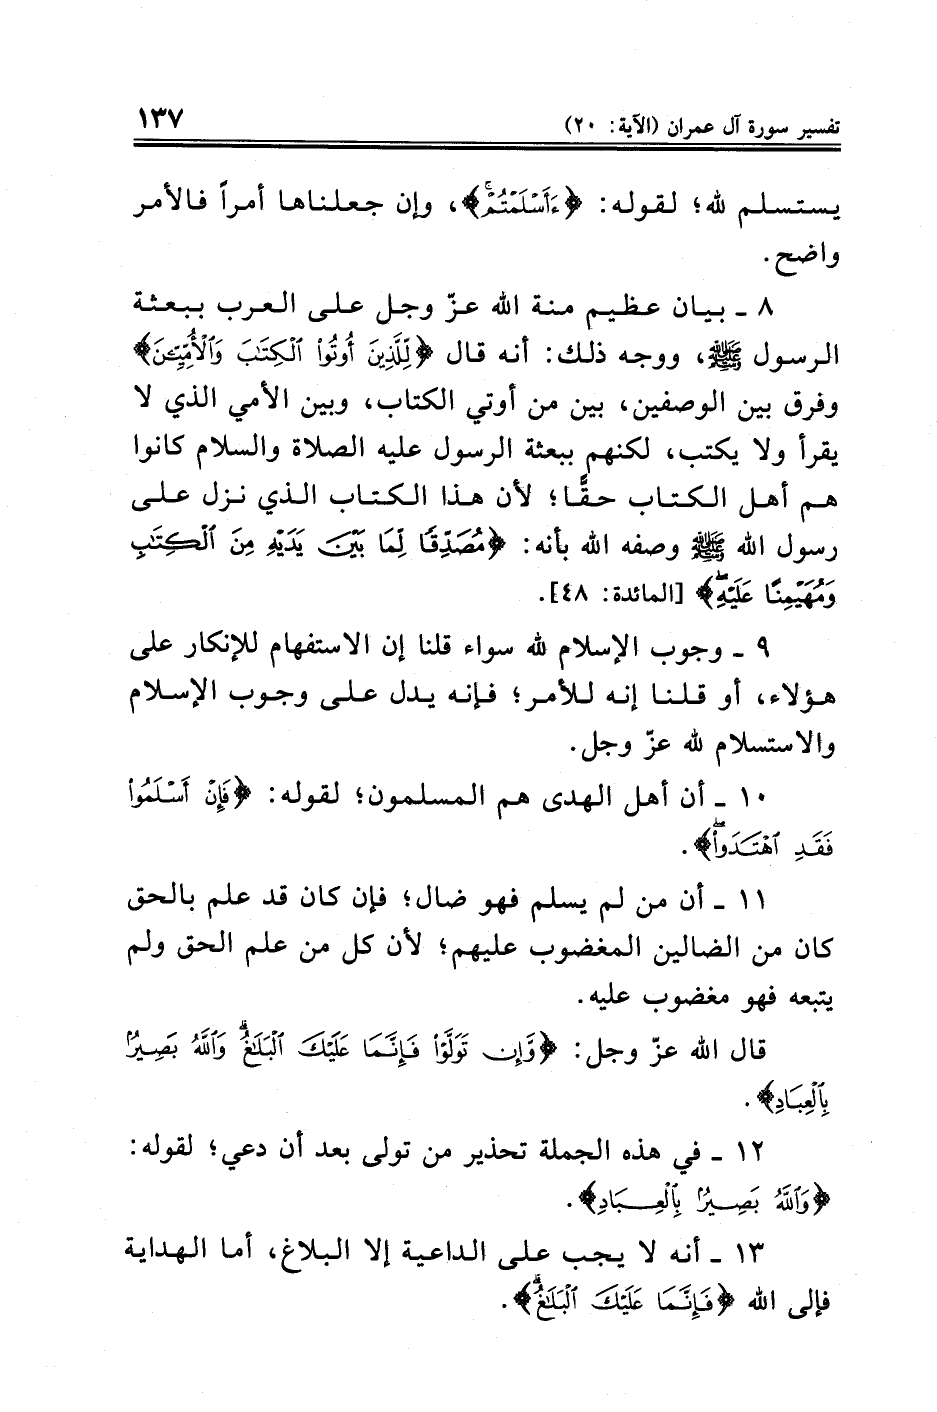 تفسير سورة آل عمران (الآية: ٢٠) ١٣٧
يستسلم لله؛ لقوله: ﴿ءَأَسْلَمْتُمْ ۚ﴾، وإن جعلناها أمراً فالأمر
واضح.
٨ ـ بيان عظيم منة الله عزّ وجل على العرب ببعثة
الرسول ﷺ، ووجه ذلك: أنه قال ﴿لِّلَّذِينَ أُوتُوا۟ ٱلْكِتَـٰبَ وَٱلْأُمِّيِّـۧنَ﴾
وفرق بين الوصفين، بين من أوتي الكتاب، وبين الأمي الذي لا
يقرأ ولا يكتب، لكنهم ببعثة الرسول عليه الصلاة والسلام كانوا
هم أهل الكتاب حقًّا؛ لأن هذا الكتاب الذي نزل على
رسول الله ﷺ وصفه الله بأنه: ﴿مُصَدِّقًا لِّمَا بَيْنَ يَدَيْهِ مِنَ ٱلْكِتَـٰبِ
وَمُهَيْمِنًا عَلَيْهِ ۖ﴾ [المائدة: ٤٨].
٩ ـ وجوب الإسلام لله سواء قلنا إن الاستفهام للإنكار على
هؤلاء، أو قلنا إنه للأمر؛ فإنه يدل على وجوب الإسلام
والاستسلام لله عزّ وجل.
١٠ ـ أن أهل الهدى هم المسلمون؛ لقوله: ﴿فَإِنْ أَسْلَمُوا۟
فَقَدِ ٱهْتَدَوا۟ ۖ﴾.
١١ ـ أن من لم يسلم فهو ضال؛ فإن كان قد علم بالحق
كان من الضالين المغضوب عليهم؛ لأن كل من علم الحق ولم
يتبعه فهو مغضوب عليه.
قال الله عزّ وجل: ﴿وَّإِن تَوَلَّوْا۟ فَإِنَّمَا عَلَيْكَ ٱلْبَلَـٰغُ ۗ وَٱللَّهُ بَصِيرٌۢ
بِٱلْعِبَادِ﴾.
١٢ ـ في هذه الجملة تحذير من تولى بعد أن دعي؛ لقوله:
﴿وَٱللَّهُ بَصِيرٌۢ بِٱلْعِبَادِ﴾.
١٣ ـ أنه لا يجب على الداعية إلا البلاغ، أما الهداية
فإلى الله ﴿فَإِنَّمَا عَلَيْكَ ٱلْبَلَـٰغُ ۗ﴾.